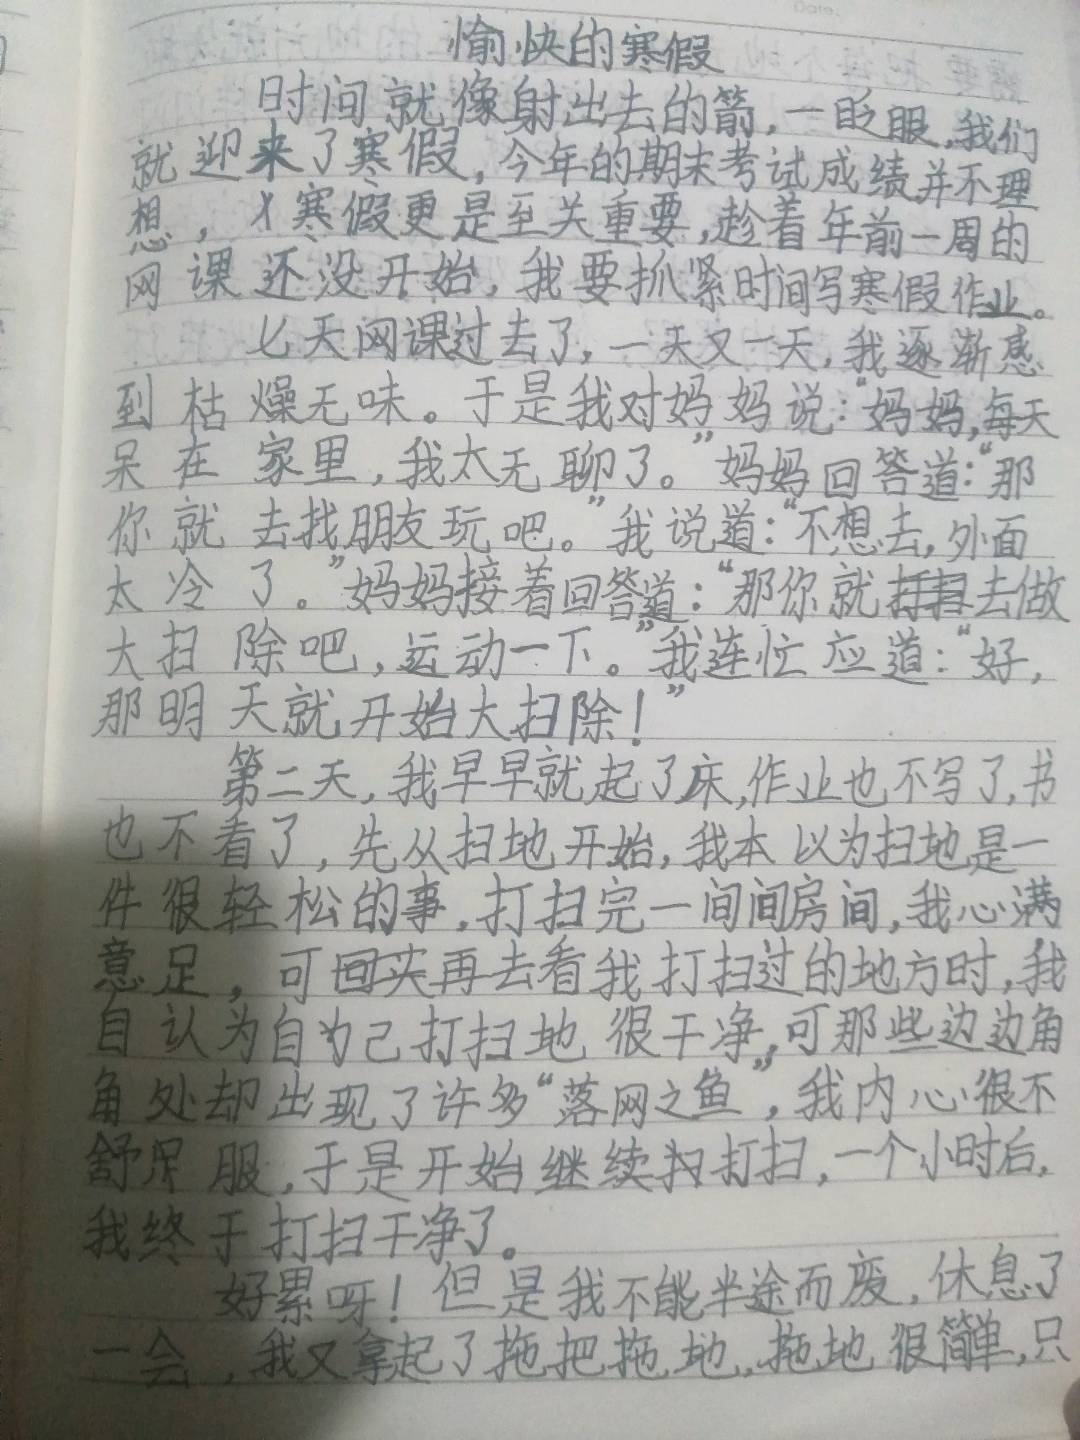 愉快的寒假
时间就像射出去的箭，一眨眼，我们
就迎来了寒假，今年的期末考试成绩并不理
想，寒假更是至关重要，趁着年前一周的
网课还没开始，我要抓紧时间写寒假作业。
七天网课过去了，一天又一天，我逐渐感
到枯燥无味。于是我对妈妈说：“妈妈，每天
呆在家里，我太无聊了。”妈妈回答道：“那
你就去找朋友玩吧。”我说道：“不想去，外面
太冷了。”妈妈接着回答道：“那你就去做
大扫除吧，运动一下。”我连忙应道：“好，
那明天就开始大扫除！”
第二天，我早早就起了床，作业也不写了，书
也不看了，先从扫地开始，我本以为扫地是一
件很轻松的事，打扫完一间间房间，我心满
意足，可再去看我打扫过的地方时，我
自认为自己打扫地很干净，可那些边边角
角处却出现了许多“落网之鱼”，我内心很不
舒服，于是开始继续打扫，一个小时后，
我终于打扫干净了。
好累呀！但是我不能半途而废，休息了
一会，我又拿起了拖把拖地，拖地很简单，只